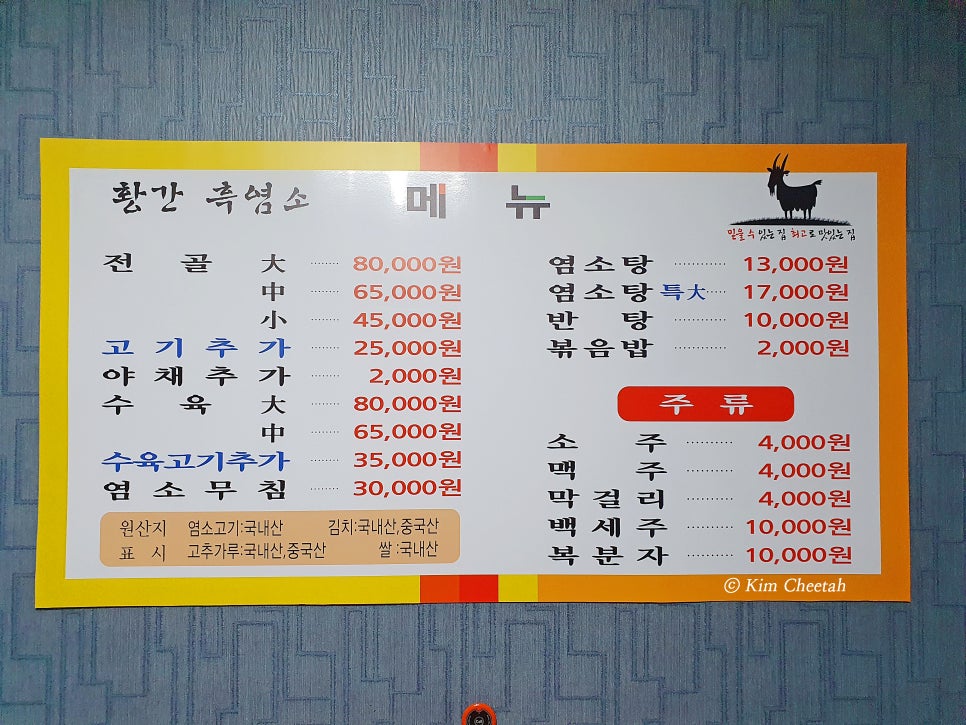 황간 흑염소 메 뉴
믿을 수 있는 집 최고로 맛있는 집
전 골 大 ........ 80,000원
中 ........ 65,000원
小 ........ 45,000원
고 기 추 가 ........ 25,000원
야 채 추 가 ........ 2,000원
수 육 大 ........ 80,000원
中 ........ 65,000원
수육고기추가 ........ 35,000원
염 소 무 침 ........ 30,000원
원산지 염소고기:국내산 김치:국내산,중국산
표 시 고추가루:국내산,중국산 쌀 :국내산
염소탕 ........... 13,000원
염소탕 特大 ..... 17,000원
반 탕 ........... 10,000원
볶음밥 ........... 2,000원
주 류
소 주 .......... 4,000원
맥 주 .......... 4,000원
막 걸 리 .......... 4,000원
백 세 주 .......... 10,000원
복 분 자 .......... 10,000원
© Kim Cheetah